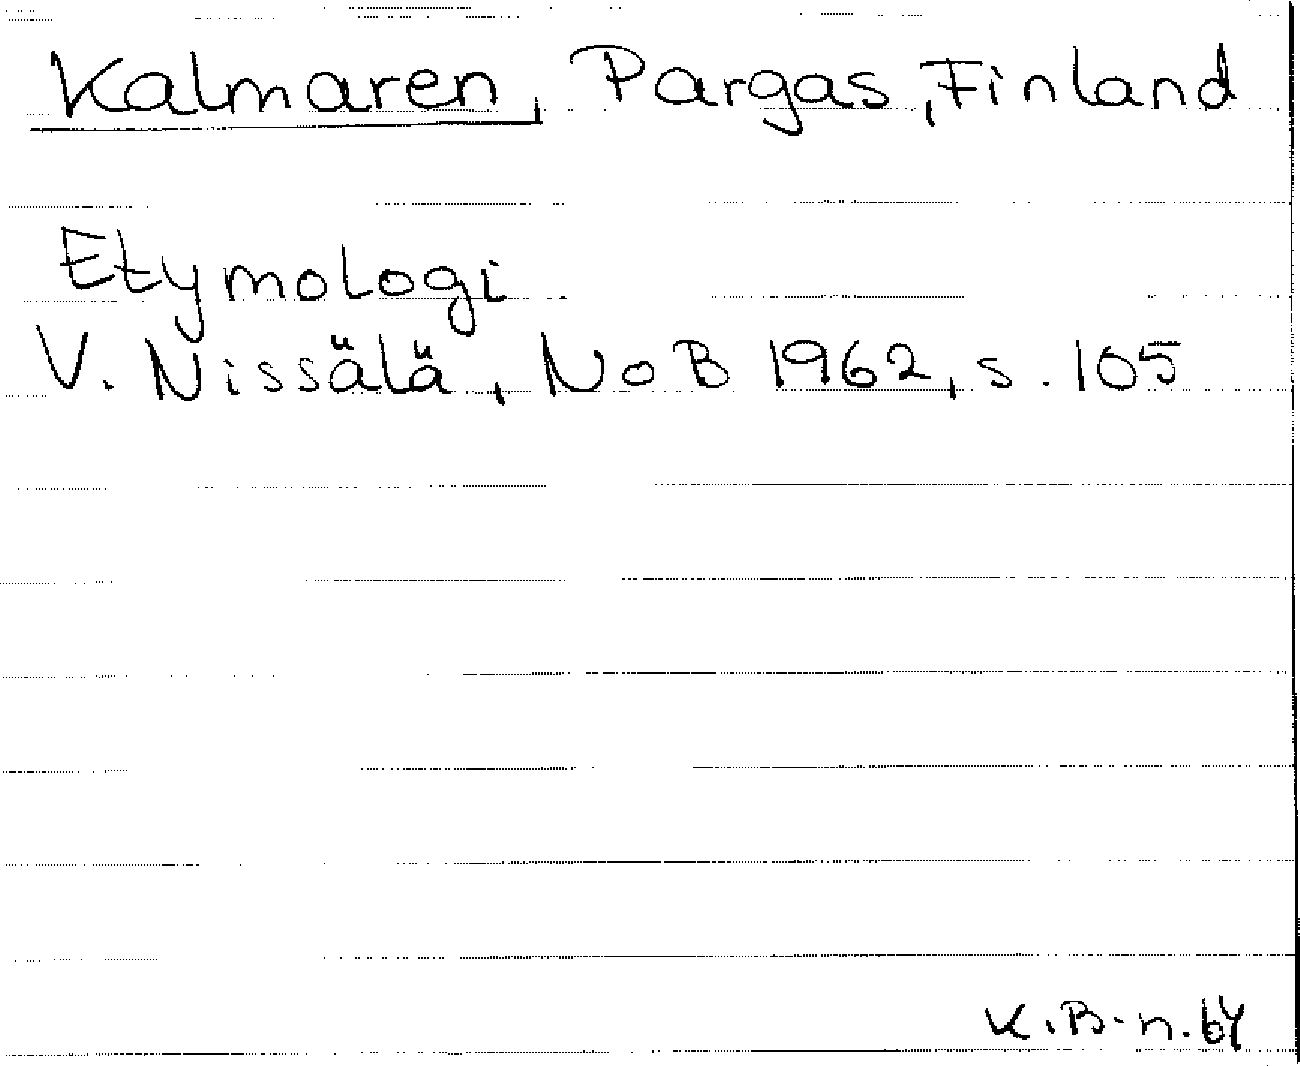 Kalmaren, Pargas, Finland
Etymologi
V. Nissälä, NoB 1962, s. 105
K.B-n. 64